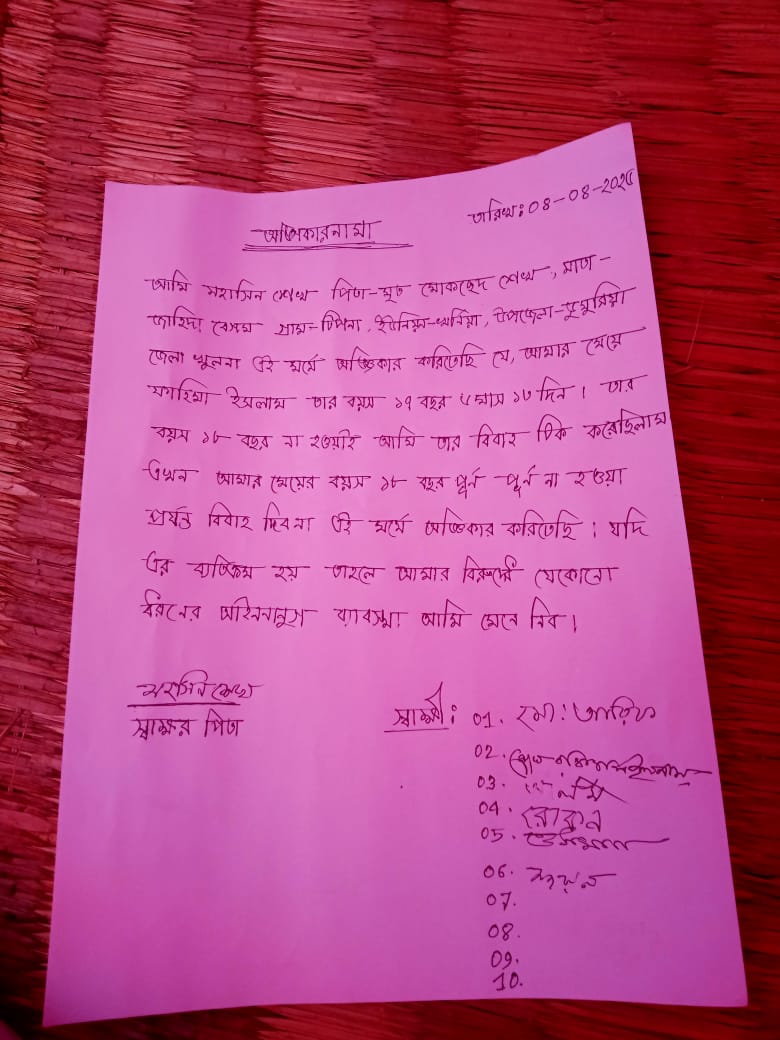 তারিখ: 08-08-২০২৫
অঙ্গিকারনামা
আমি মহাসিন শেখ পিতা-মৃত মোকছেদ শেখ, মাতা-
জাহিদা বেগম গ্রাম-টিপনা, ইউনিয়ন-খর্নিয়া, উপজেলা-ডুমুরিয়া
জেলা খুলনা এই মর্মে অঙ্গিকার করিতেছি যে, আমার মেয়ে
ফাহিমা ইসলাম তার বয়স ১৭ বছর ৫ মাস ১৩ দিন। তার
বয়স ১৮ বছর না হওয়াই আমি তার বিবাহ ঠিক করেছিলাম
এখন আমার মেয়ের বয়স ১৮ বছর পূর্ন পূর্ন না হওয়া
প্রর্যন্ত বিবাহ দিবনা এই মর্মে অঙ্গিকার করিতেছি। যদি
এর ব্যতিক্রম হয় তাহলে আমার বিরুদ্ধে যেকোনো
ধরনের আইনানুগ ব্যাবস্থা আমি মেনে নিব।
মহাসিন শেখ
স্বাক্ষর পিতা
স্বাক্ষী: 01. মো: আরিফ
02.
03.
04. রোকন
05.
06.
07.
08.
09.
10.